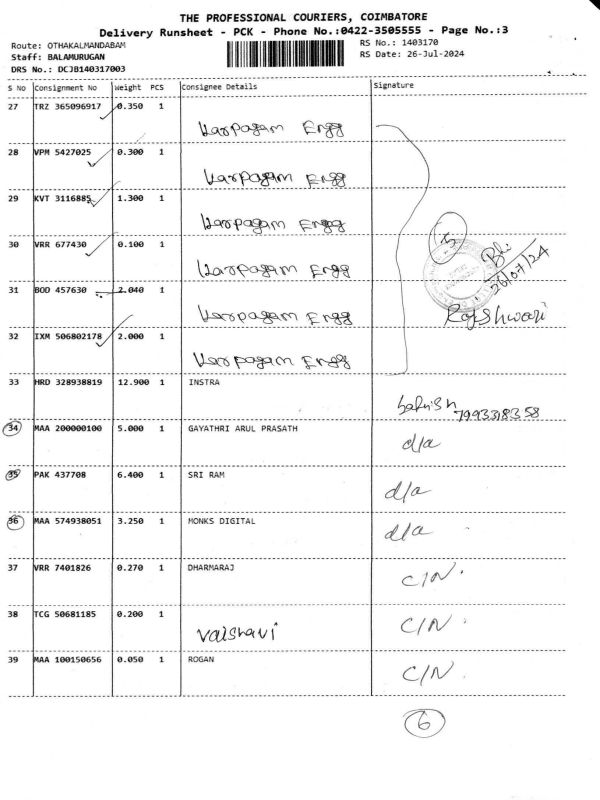 THE PROFESSIONAL COURIERS, COIMBATORE
Delivery Runsheet - PCK - Phone No.:0422-3505555 - Page No.:3
Route: OTHAKALMANDABAM
RS No.: 1403170
Staff: BALAMURUGAN
RS Date: 26-Jul-2024
DRS No.: DCJB140317003
S No Consignment No Weight PCS Consignee Details Signature
27 TRZ 365096917 0.350 1
Karpagam Engg
28 VPM 5427025 0.300 1
Karpagam Engg
29 KVT 3116885 1.300 1
Karpagam Engg
5
30 VRR 677430 0.100 1
Karpagam Engg
26/07/24
31 BOD 457630 2.040 1
Karpagam Engg Rajshwari
32 IXM 506802178 2.000 1
Karpagam Engg
33 HRD 328938819 12.900 1 INSTRA
34 MAA 200000100 5.000 1 GAYATHRI ARUL PRASATH d/a
35 PAK 437708 6.400 1 SRI RAM d/a
36 MAA 574938051 3.250 1 MONKS DIGITAL d/a
37 VRR 7401826 0.270 1 DHARMARAJ C/N.
38 TCG 50681185 0.200 1 Vaishavi C/N.
39 MAA 100150656 0.050 1 ROGAN C/N.
6